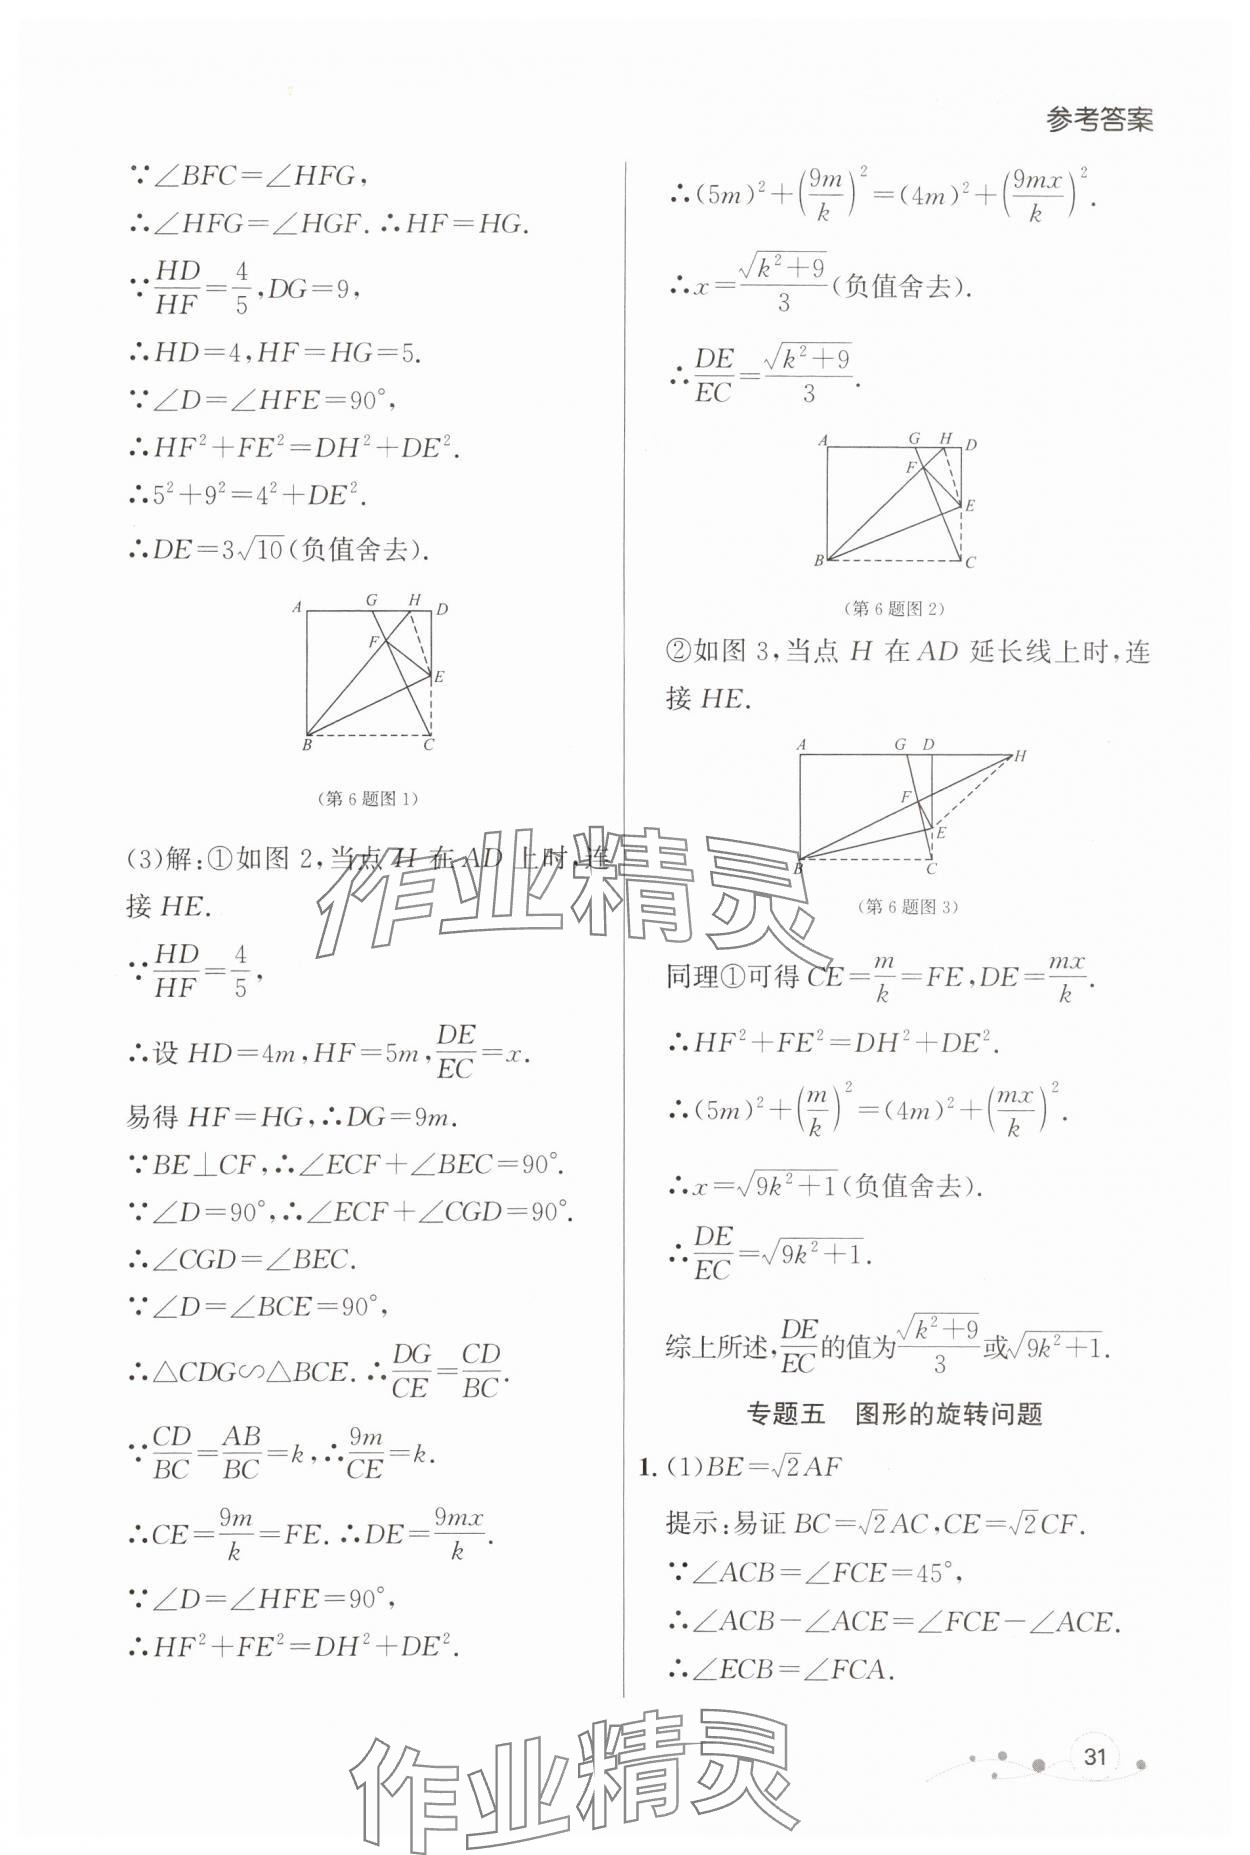 参考答案
∵∠BFC=∠HFG,
∴∠HFG=∠HGF. ∴HF=HG.
∵HD/HF=4/5,DG=9,
∴HD=4,HF=HG=5.
∵∠D=∠HFE=90°,
∴HF²+FE²=DH²+DE².
∴5²+9²=4²+DE².
∴DE=3√10(负值舍去).
A G H D
F
E
B C
(第6题图1)
(3)解:①如图2,当点H在AD上时,连
接HE.
∵HD/HF=4/5,
∴设HD=4m,HF=5m,DE/EC=x.
易得HF=HG,∴DG=9m.
∵BE⊥CF,∴∠ECF+∠BEC=90°.
∵∠D=90°,∴∠ECF+∠CGD=90°.
∴∠CGD=∠BEC.
∵∠D=∠BCE=90°,
∴△CDG∽△BCE. ∴DG/CE=CD/BC.
∵CD/BC=AB/BC=k,∴9m/CE=k.
∴CE=9m/k=FE. ∴DE=9mx/k.
∵∠D=∠HFE=90°,
∴HF²+FE²=DH²+DE².
∴(5m)²+(9m/k)²=(4m)²+(9mx/k)².
∴x=√(k²+9)/3(负值舍去).
∴DE/EC=√(k²+9)/3.
A G H D
F
E
B C
(第6题图2)
②如图3,当点H在AD延长线上时,连
接HE.
A G D H
F
E
B C
(第6题图3)
同理①可得CE=m/k=FE,DE=mx/k.
∴HF²+FE²=DH²+DE².
∴(5m)²+(m/k)²=(4m)²+(mx/k)².
∴x=√(9k²+1)(负值舍去).
∴DE/EC=√(9k²+1).
综上所述,DE/EC的值为√(k²+9)/3或√(9k²+1).
专题五 图形的旋转问题
1.(1)BE=√2AF
提示:易证BC=√2AC,CE=√2CF.
∵∠ACB=∠FCE=45°,
∴∠ACB-∠ACE=∠FCE-∠ACE.
∴∠ECB=∠FCA.
作业精灵
作业精灵
31